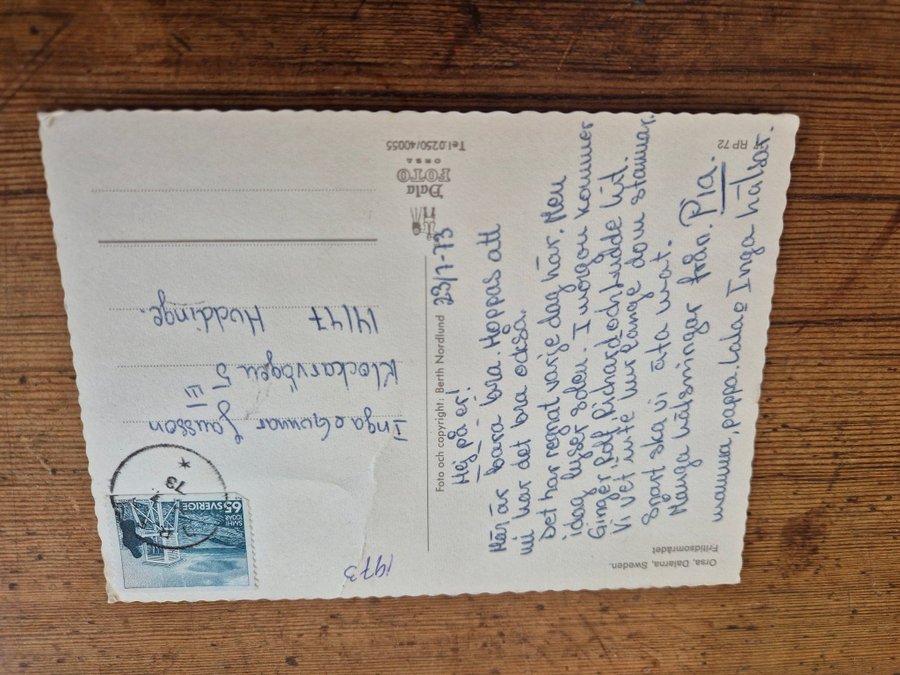 23/7-73
Hej på er!
Här är bara bra. Hoppas att
ni har det bra också.
Det har regnat varje dag här. Men
idag lyser solen. I morgon kommer
Ginger, Rolf, Richard och Ludde hit.
Vi vet inte hur länge dom stannar.
Snart ska vi äta mat.
Många hälsningar från. Pia.
mamma, pappa. Lala o Inga hälsar.
Inga o Gunnar Jansson
Klockarvägen 5 III
14147 Huddinge.
1973
SVERIGE 65
73
Foto och copyright: Berth Nordlund
Dala
FOTO
ORSA
Tel. 0250/40055
RP 72
Orsa, Dalarna, Sweden.
Fritidsområdet